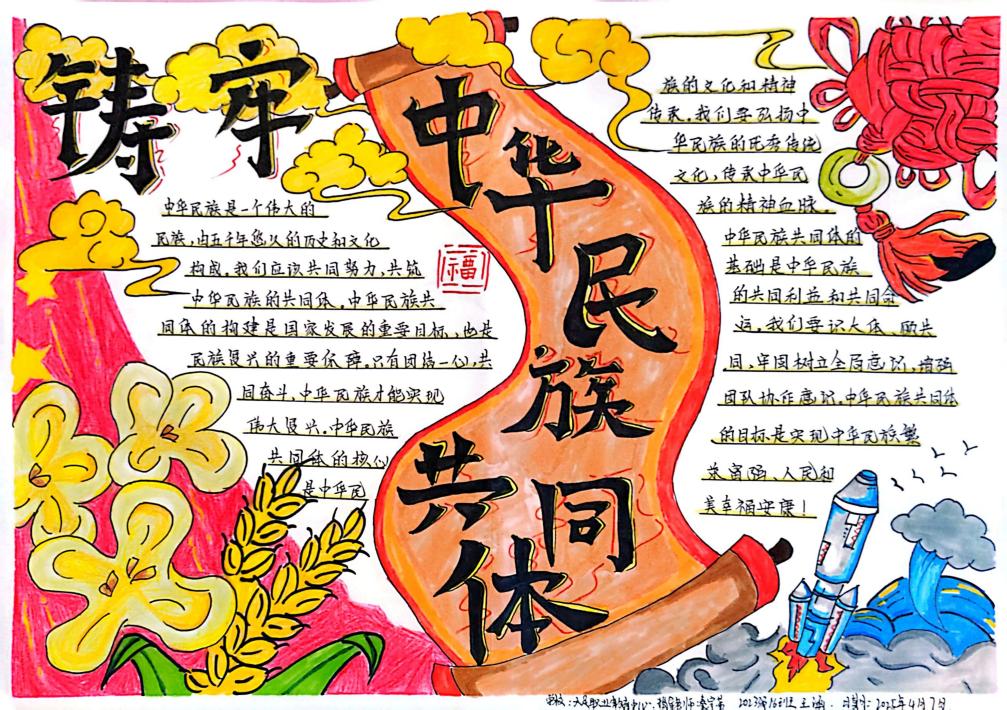 铸牢
中华民族共同体
中华民族是一个伟大的
民族,由五千年悠久的历史和文化
构成,我们应该共同努力,共筑
中华民族的共同体,中华民族共
同体的构建是国家发展的重要目标,也是
民族复兴的重要保障,只有团结一心,共
同奋斗,中华民族才能实现
伟大复兴.中华民族
共同体的核心
是中华民
福
族的文化和精神
传承,我们要弘扬中
华民族的优秀传统
文化,传承中华民
族的精神血脉,
中华民族共同体的
基础是中华民族
的共同利益和共同命
运,我们要识大体、顾共
同,牢固树立全局意识,增强
团队协作意识,中华民族共同体
的目标是实现中华民族繁
荣富强、人民和
美幸福安康!
2025年4月7日